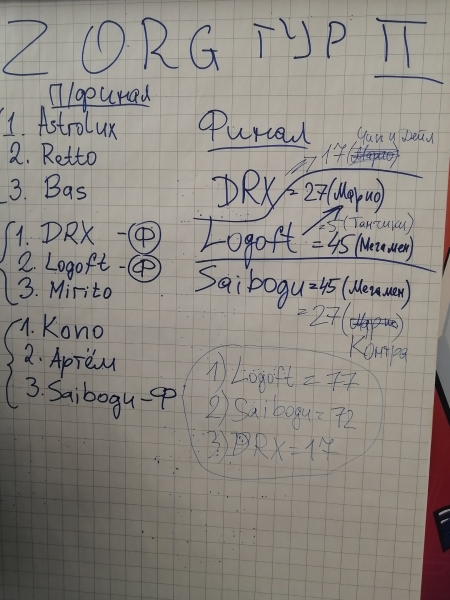 Z ORG ТУР II
П/финал
1. Astrolux
2. Retto
3. Bas
1. DRX - Ф
2. Logoft - Ф
3. Mirito
1. Kono
2. Артём
3. Saibogu - Ф
Финал
17 (Марио) Чип и Дейл
DRX = 27 (Марио)
(Танчики)
Logoft = 45 (Мегамен)
Saibogu = 45 (Мегамен)
= 27 (Марио)
Контра
1) Logoft = 77
2) Saibogu = 72
3) DRX = 17